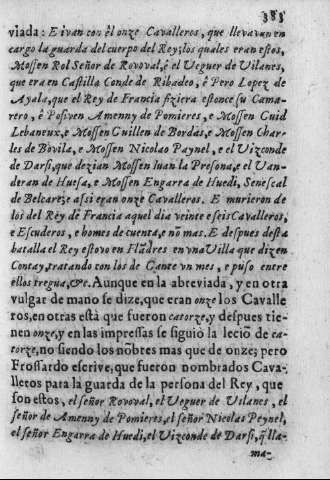 383
viada: E ivan con èl onze Cavalleros, que llevavan en
cargo la guarda del cuerpo del Rey; los quales eran estos,
Mossen Rol Señor de Rovoval, è el Veguer de Vilanes,
que era en Castilla Conde de Ribadeo, è Pero Lopez de
Ayala, que el Rey de Francia fiziera estonce su Cama-
rero, è Posiven Amenny de Pomieres, e Mossen Cuid
Lebaneux, e Mossen Cuillen de Bordas, e Mossen Char-
les de Bovila, e Mossen Nicolao Paynel, e el Vizconde
de Darsi, què dezian Mossen Iuan la Presona, e el Van-
deran de Huesa, e Mossen Engarra de Huedi, Senescal
de Belcarez; e assi eran onze Cavalleros. E murieron de
los del Rey de Francia aquel dia veinte e seis Cavalleros,
e Escuderos, e homes de cuenta, e nõ mas. E despues desta
batalla el Rey estovo en Flãdres en vna Villa que dizen
Contay, tratando con los de Gante vn mes, e puso entre
ellos tregua, &c. Aunque en la abreviada, y en otra
vulgar de mano se dize, que eran onze los Cavalle
ros, en otras està que fueron catorze, y despues tie-
nen onze, y en las impressas se siguiò la lecciõ de ca-
torze, no siendo los nõbres mas que de onze; pero
Frossardo escrive, que fueron nombrados Cava-
lleros para la guarda de la persona del Rey, que
son estos, el señor Rovoval, el Veguer de Vilanes, el
señor de Amenny de Pomieres, el señor Nicolas Peynel,
el señor Engarra de Huedi, el Vizconde de Darsi, q̃ lla-
ma-